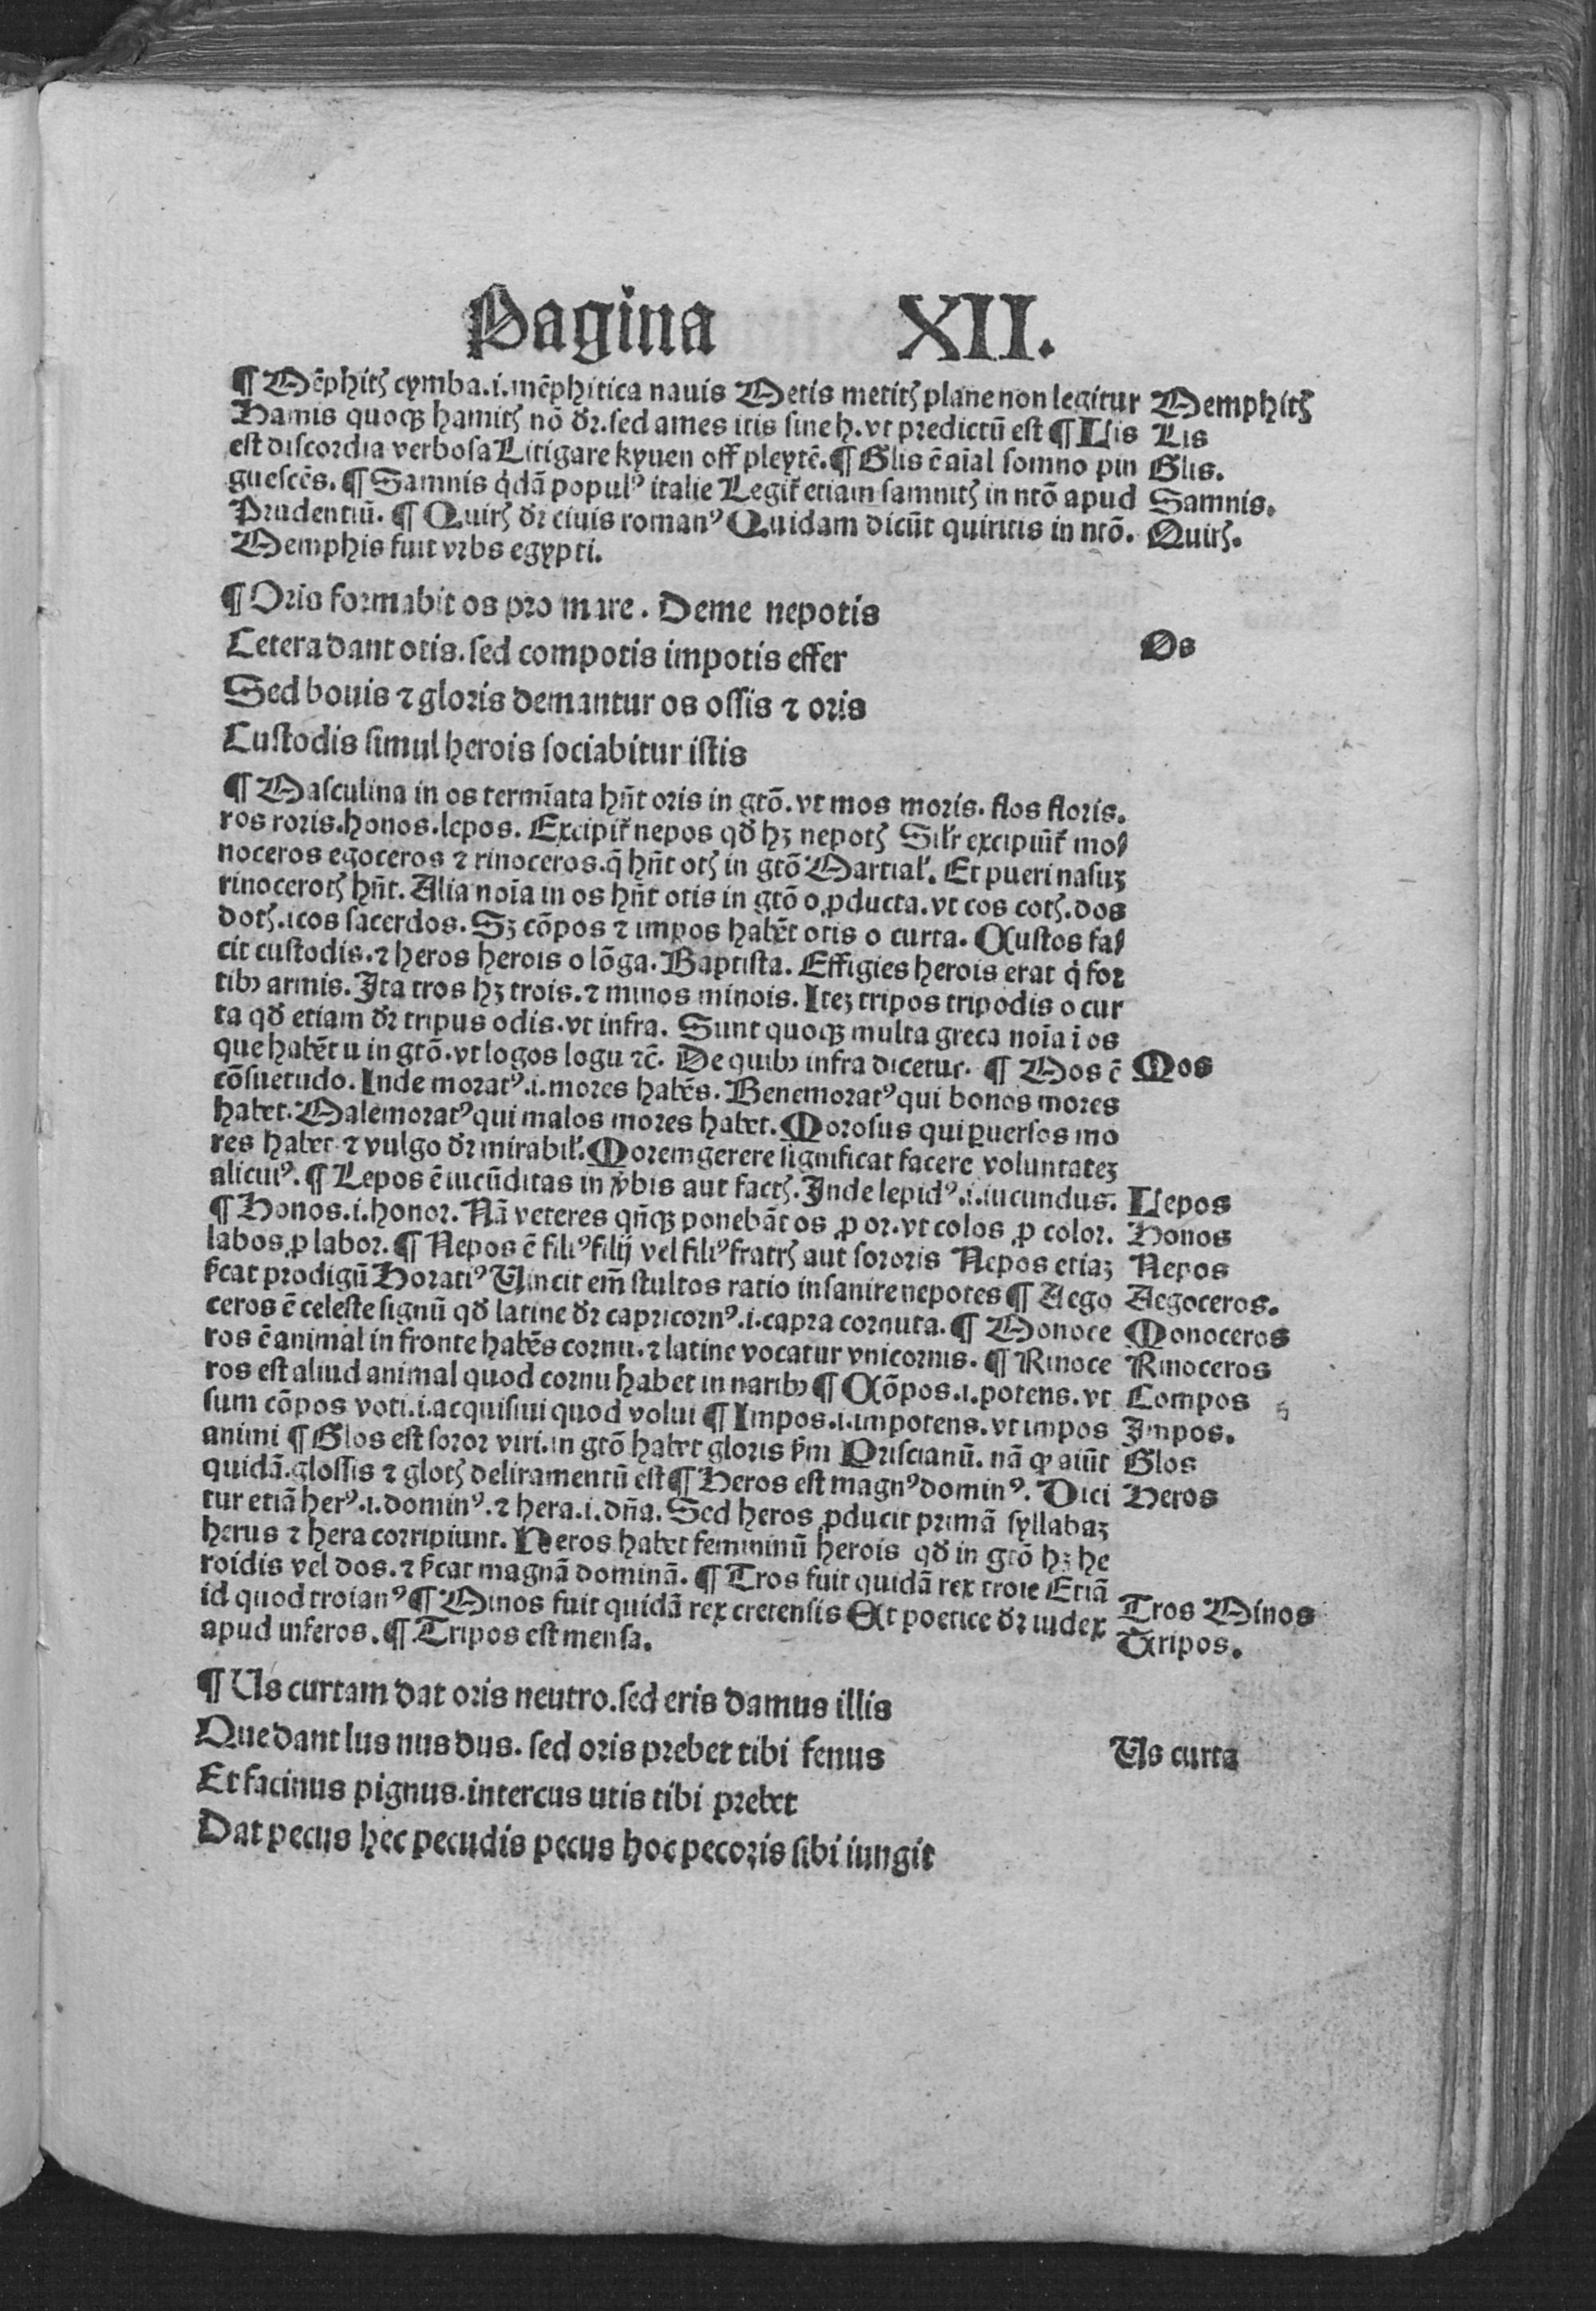 Pagina XII.
¶ Mēphitꝭ cymba.i.mēphitica nauis Metis metitꝭ plane non legitur Memphitꝭ
Hamis quoqꝫ hamitꝭ nō dꝛ.sed ames itis sine h.vt predictū est ¶ Lis Lis
est discordia verbosa Litigare kyuen off pleytē. ¶ Glis ē aīal somno pin Glis.
guescēs. ¶ Samnis qͥdā populꝰ italie Legit᷑ etiam samnitꝭ in ntō apud Samnis.
Prudentiū. ¶ Quirꝭ dꝛ ciuis romanꝰ Quidam dicūt quiritis in ntō. Quirꝭ.
Memphis fuit vrbs egypti.
¶ Oris formabit os pro mare. Deme nepotis
Cetera dant otis.sed compotis impotis effer Os
Sed bouis ⁊ gloris demantur os ossis ⁊ oris
Custodis simul herois sociabitur istis
¶ Masculina in os termīata hn̄t oris in gtō.vt mos moris. flos floris.
ros roris.honos.lepos. Excipit᷑ nepos qd̄ hꝫ nepotꝭ Silr̄ excipiūt᷑ mo/
noceros egoceros ⁊ rinoceros.q̄ hn̄t otꝭ in gtō Martial᷑. Et pueri nasuꝫ
rinocerotꝭ hn̄t. Alia noīa in os hn̄t otis in gtō o ꝓducta.vt cos cotꝭ.dos
dotꝭ.icos sacerdos. Sꝫ cōpos ⁊ impos habēt otis o curta. Custos fa/
cit custodis.⁊ heros herois o lōga. Baptista. Effigies herois erat qͥ for
tibꝰ armis. Ita tros hꝫ trois.⁊ minos minois. Iteꝫ tripos tripodis o cur
ta qd̄ etiam dꝛ tripus odis.vt infra. Sunt quoqꝫ multa greca noīa ī os
que habēt u in gtō.vt logos logu ⁊c̄. De quibꝰ infra dicetur. ¶ Mos ē Mos
cōsuetudo. Inde moratꝰ.i.mores habēs. Benemoratꝰ qui bonos mores
habet. Malemoratꝰ qui malos mores habet. Morosus qui ꝑuersos mo
res habet ⁊ vulgo dꝛ mirabil᷑. Morem gerere significat facere voluntateꝫ
alicuiꝰ. ¶ Lepos ē iucūditas in v̓bis aut factꝭ. Inde lepidꝰ.i.iucundus. Lepos
¶ Honos.i.honor. Nā veteres qn̄qꝫ ponebāt os ꝓ or.vt colos ꝓ color. Honos
labos ꝓ labor. ¶ Nepos ē filiꝰ filij vel filiꝰ fratrꝭ aut sororis Nepos etiaꝫ Nepos
ſc̓at prodigū Horatiꝰ Vincit em̄ stultos ratio insanire nepotes ¶ Aego Aegoceros.
ceros ē celeste signū qd̄ latine dꝛ capricornꝰ.i.capra cornuta. ¶ Monoce Monoceros
ros ē animal in fronte habēs cornu.⁊ latine vocatur vnicornis. ¶ Rinoce Rinoceros
ros est aliud animal quod cornu habet in naribꝰ ¶ Cōpos.i.potens.vt Compos
sum cōpos voti.i.acquisiui quod volui ¶ Impos.i.impotens.vt impos Impos.
animi ¶ Glos est soror viri.in gtō habet gloris ẜm Priscianū. nā ꝙ aiūt Glos
quidā.glossis ⁊ glotꝭ deliramentū est ¶ Heros est magnꝰ dominꝰ. Dici Heros
tur etiā herꝰ.i.dominꝰ.⁊ hera.i.dn̄a. Sed heros ꝓducit primā syllabaꝫ
herus ⁊ hera corripiunt. Heros habet femininū herois qd̄ in gtō hꝫ he
roidis vel dos.⁊ ſc̓at magnā dominā. ¶ Tros fuit quidā rex troie Etiā
id quod troianꝰ ¶ Minos fuit quidā rex cretensis Et poetice dꝛ iudex Tros Minos
apud inferos. ¶ Tripos est mensa. Tripos.
¶ Us curtam dat oris neutro.sed eris damus illis
Que dant lus nus dus. sed oris prebet tibi fenus Us curta
Et facinus pignus.intercus utis tibi prebet
Dat pecus hec pecudis pecus hoc pecoris sibi iungit